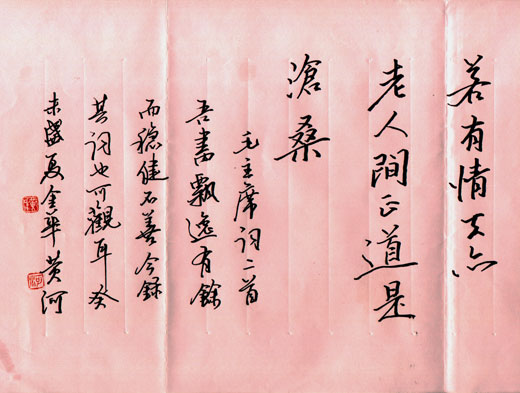 若有情天亦
老人間正道是
滄桑
毛主席詞二首
吾書飄逸有餘
而穩健不善今錄
其詞也可觀耳癸
未盛夏金華黄河